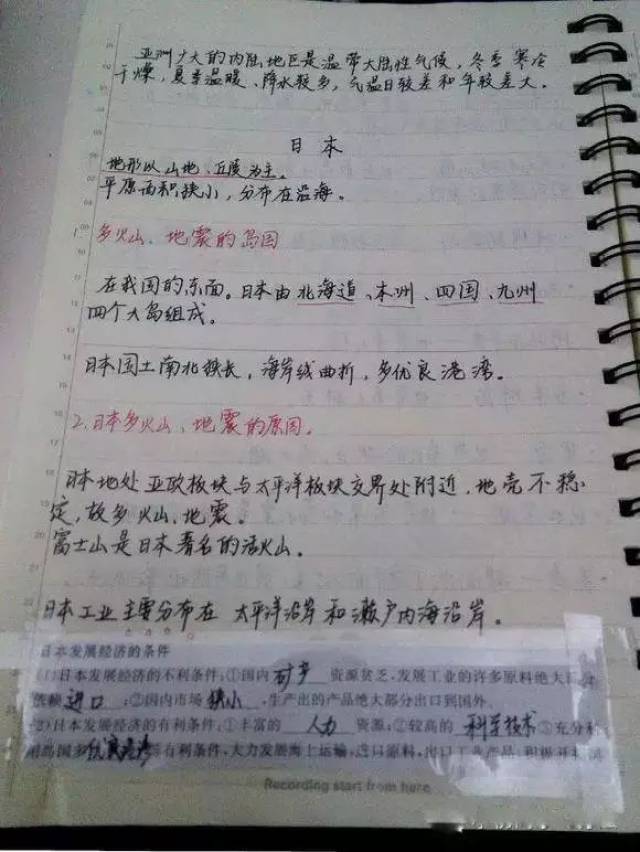 亚洲广大的内陆地区是温带大陆性气候，冬季寒冷
干燥，夏季温暖、降水较多，气温日较差和年较差大。
日本
地形以山地、丘陵为主。
平原面积狭小，分布在沿海。
1. 多火山、地震的岛国
在我国的东面。日本由北海道、本州、四国、九州
四个大岛组成。
日本国土南北狭长，海岸线曲折，多优良港湾。
2. 日本多火山、地震的原因。
日本地处亚欧板块与太平洋板块交界处附近，地壳不稳
定，故多火山、地震。
富士山是日本著名的活火山。
日本工业主要分布在 太平洋沿岸和濑户内海沿岸。
日本发展经济的条件
(1)日本发展经济的不利条件:①国内 矿产 资源贫乏,发展工业的许多原料绝大部分
依赖 进口 ;②国内市场 狭小 ,生产出的产品绝大部分出口到国外。
(2)日本发展经济的有利条件:①丰富的 人力 资源;②较高的 科学技术 ③充分利
用岛国多 优良港湾 等有利条件,大力发展海上运输,进口原料,出口工业产品,积极开
Recording start from here